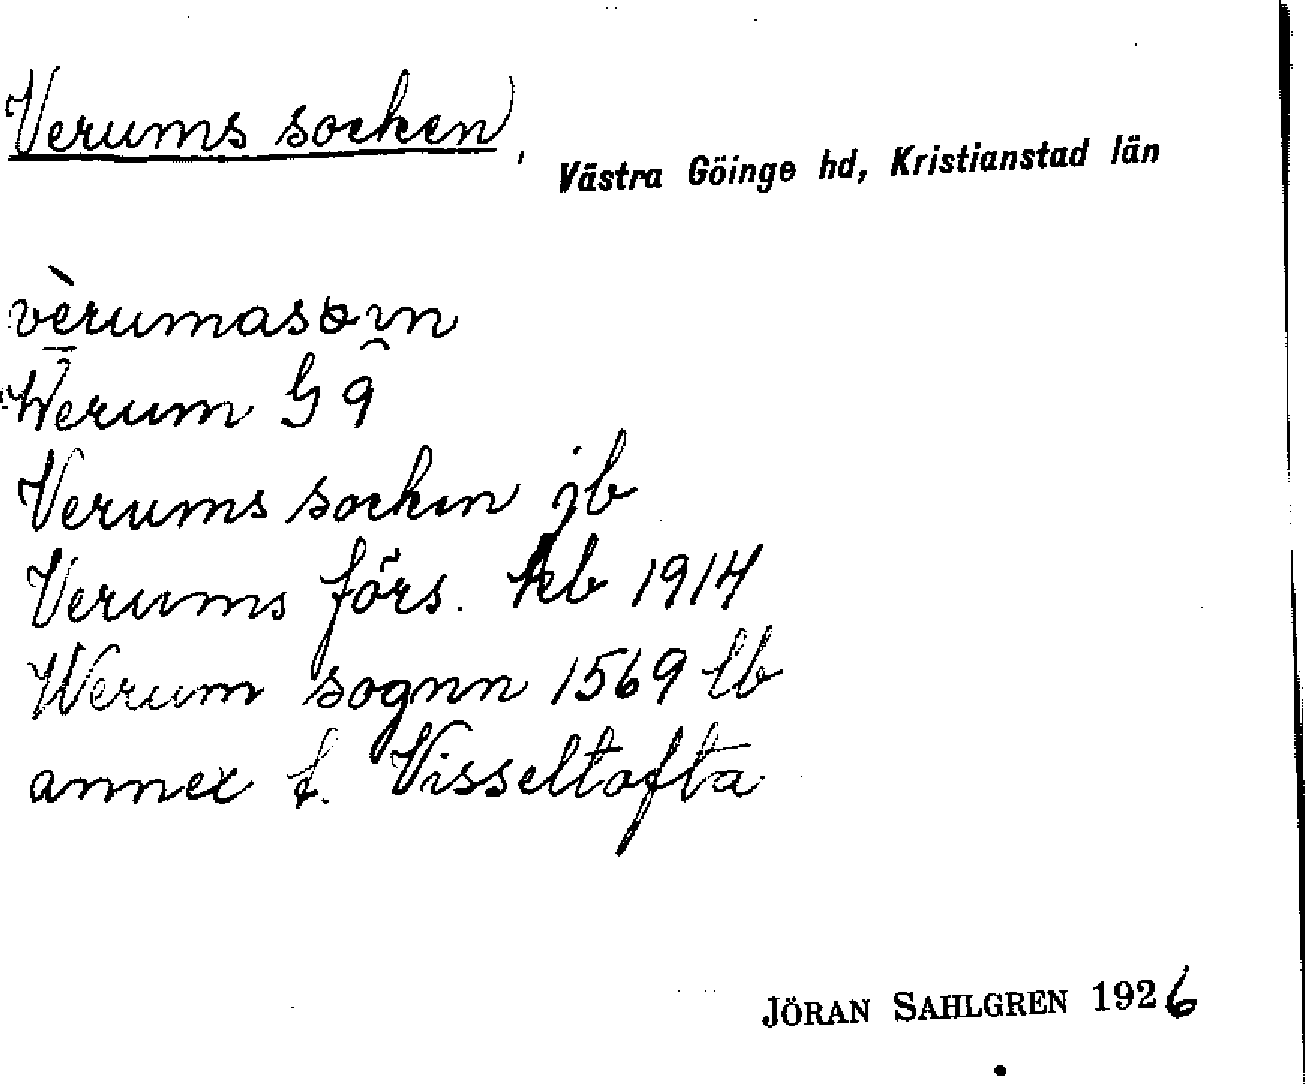 Verums socken, Västra Göinge hd, Kristianstad län
Werum G 9
Verums socken jb
Verums förs. kb 1914
Werum sognn 1569 lb
annex t. Visseltofta
JÖRAN SAHLGREN 1926